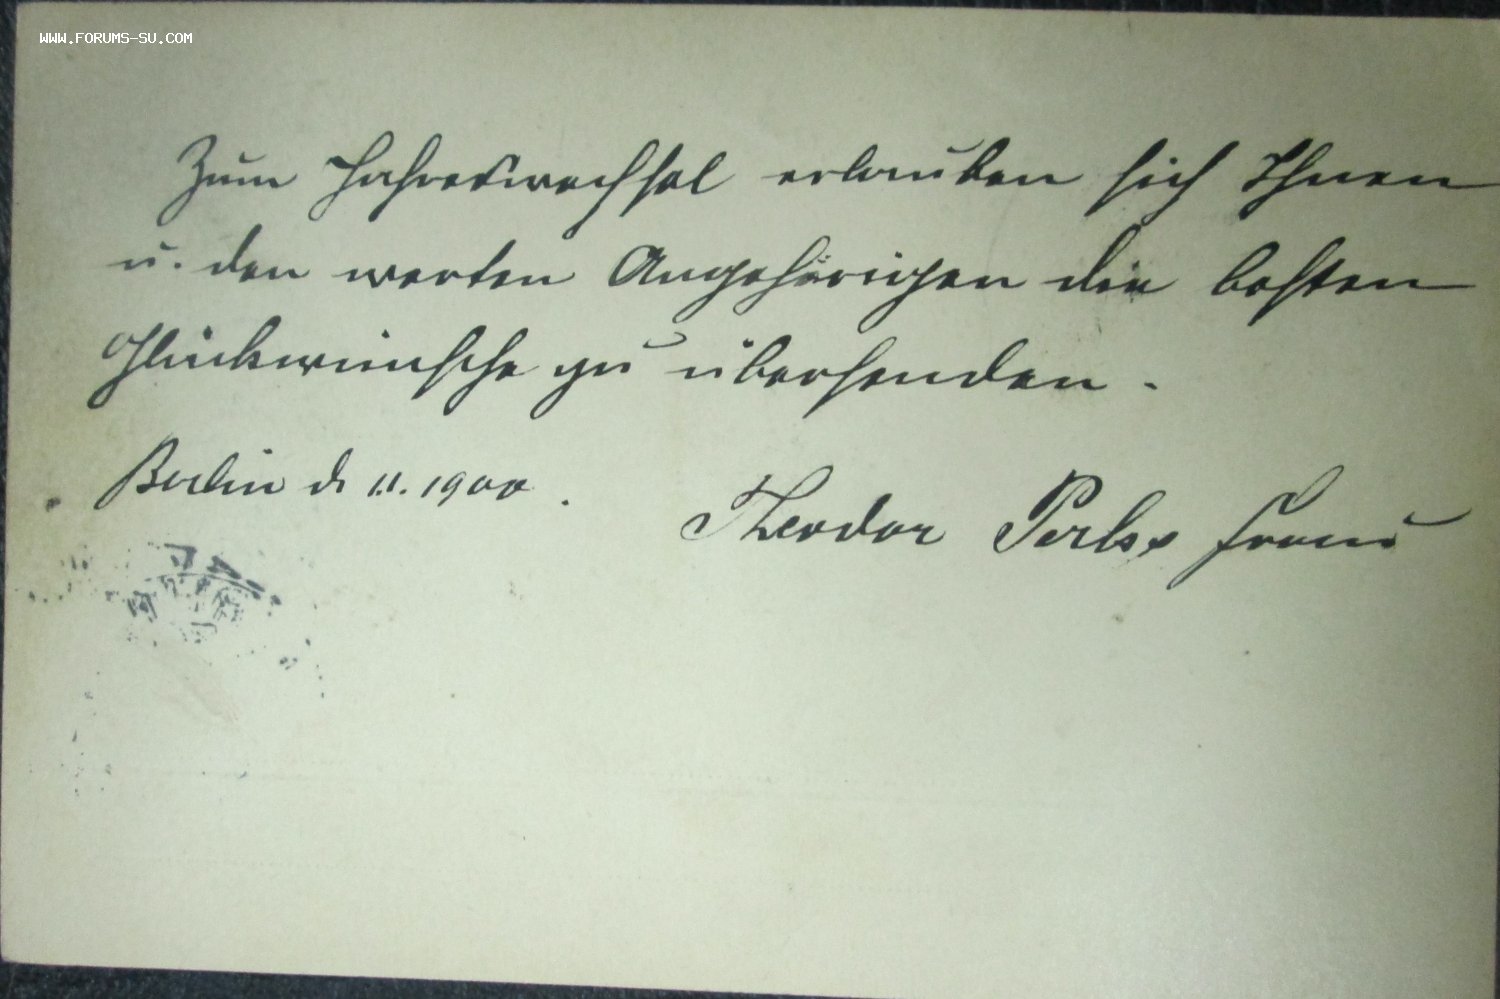 WWW.FORUMS-SU.COM
Zum Jahreswechsel erlauben sich Ihnen
u. den werten Angehörigen die besten
Glückwünsche zu übersenden.
Berlin d. 1.1. 1900.
Theodor